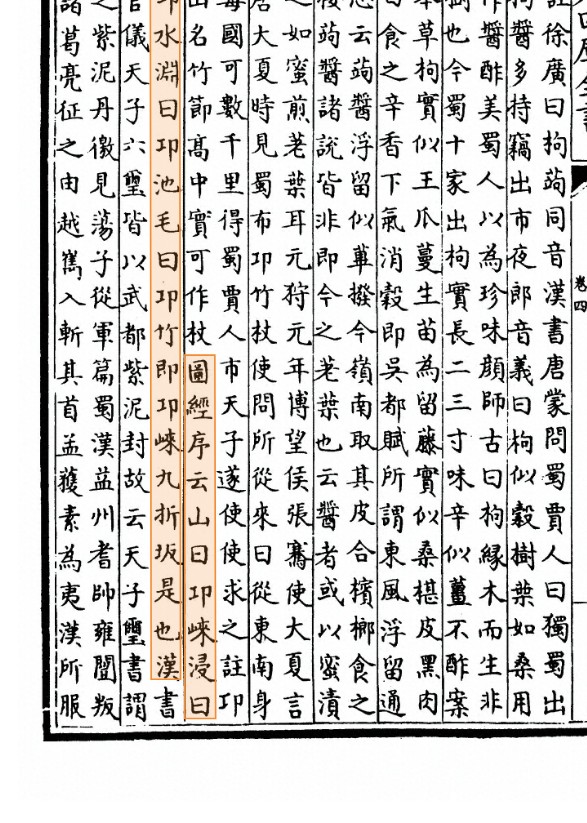 庫全書
卷四
註徐廣曰枸蒟同音漢書唐蒙問蜀賈人曰獨蜀出
枸醬多持竊出市夜郎音義曰枸似穀樹葉如桑用
作醬酢美蜀人以為珍味顔師古曰枸緣木而生非
樹也今蜀十家出枸實長二三寸味辛似薑不酢案
本草枸實似王瓜蔓生苗為留藤實似桑椹皮黑肉
白食之辛香下氣消穀即吳都賦所謂東風浮留通
志云蒟醬浮留似蓽撥今嶺南取其皮合檳榔食之
蒟醬諸說皆非即今之荖葉也云醬者或以蜜漬
之如蜜煎荖葉耳元狩元年博望侯張騫使大夏言
居大夏時見蜀布卭竹杖使問所從來曰從東南身
毒國可數千里得蜀賈人市天子遂使使求之註卭
山名竹節髙中實可作杖圖經序云山曰卭崍浸曰
卭水淵曰卭池毛曰卭竹即卭崍九折坂是也漢書
官儀天子六璽皆以武都紫泥封故云天子璽書謂
之紫泥丹徼見蕩子從軍篇蜀漢益州耆帥雍闓叛
諸葛亮征之由越嶲入斬其首孟獲素為夷漢所服